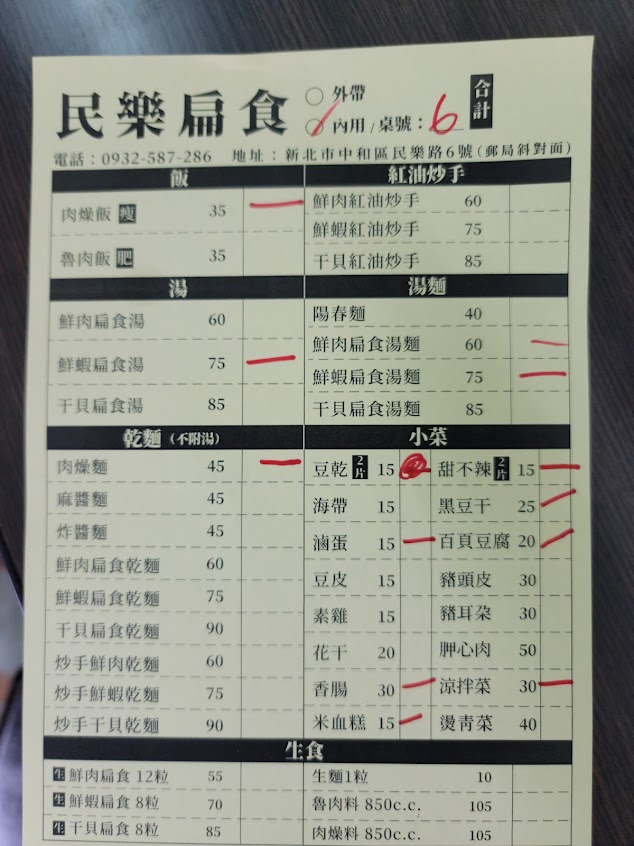 民樂扁食
外帶
內用/桌號：6
合計
電話：0932-587-286 地址：新北市中和區民樂路6號(郵局斜對面)
飯
肉燥飯 瘦 35
魯肉飯 肥 35
紅油炒手
鮮肉紅油炒手 60
鮮蝦紅油炒手 75
干貝紅油炒手 85
湯
鮮肉扁食湯 60
鮮蝦扁食湯 75
干貝扁食湯 85
湯麵
陽春麵 40
鮮肉扁食湯麵 60
鮮蝦扁食湯麵 75
干貝扁食湯麵 85
乾麵(不附湯)
肉燥麵 45
麻醬麵 45
炸醬麵 45
鮮肉扁食乾麵 60
鮮蝦扁食乾麵 75
干貝扁食乾麵 90
炒手鮮肉乾麵 60
炒手鮮蝦乾麵 75
炒手干貝乾麵 90
小菜
豆乾 2片 15 甜不辣 2片 15
海帶 15 黑豆干 25
滷蛋 15 百頁豆腐 20
豆皮 15 豬頭皮 30
素雞 15 豬耳朵 30
花干 20 胛心肉 50
香腸 30 涼拌菜 30
米血糕 15 燙青菜 40
生食
生 鮮肉扁食 12粒 55 生麵1粒 10
生 鮮蝦扁食 8粒 70 魯肉料 850c.c. 105
生 干貝扁食 8粒 85 肉燥料 850c.c. 105